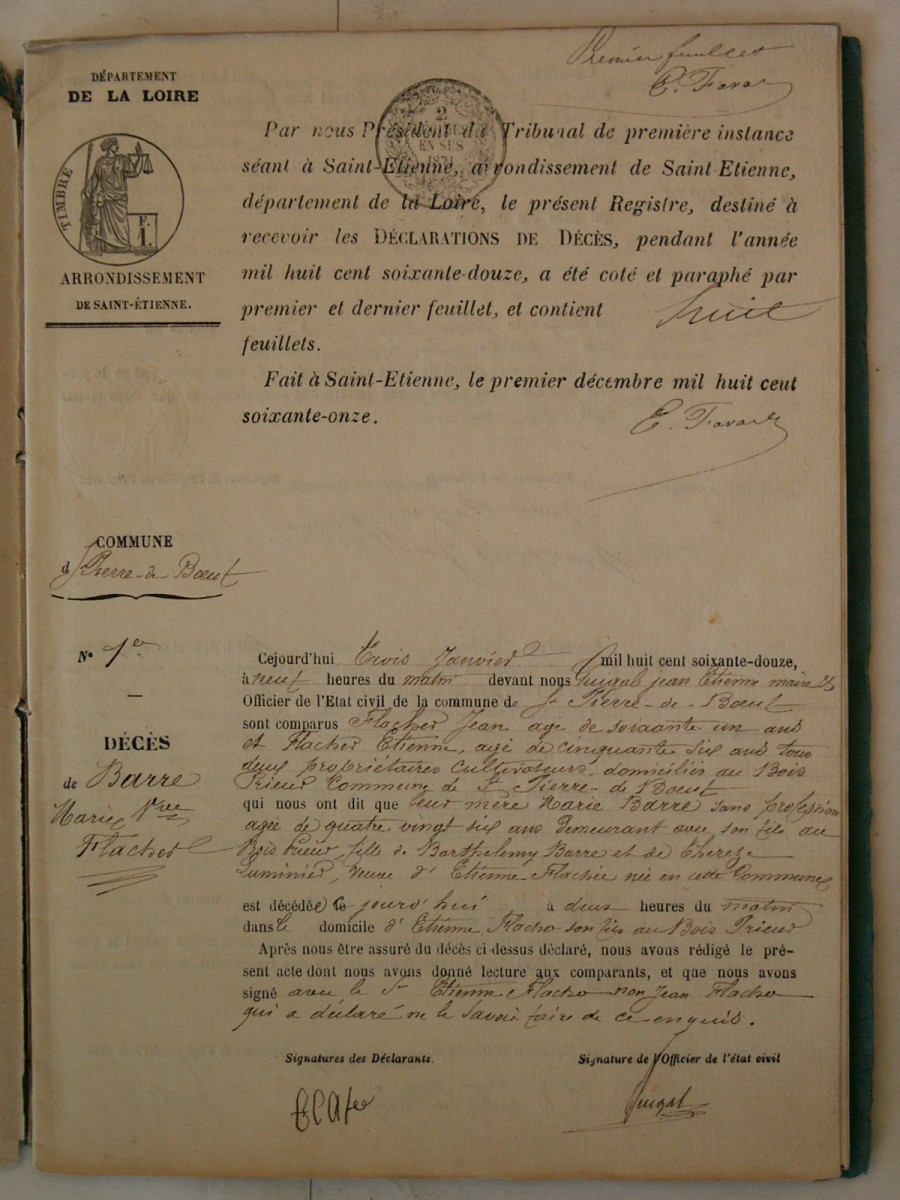 Premier feuillet
E. Favar
DÉPARTEMENT
DE LA LOIRE
TIMBRE
F.
1.
ARRONDISSEMENT
DE SAINT-ÉTIENNE.
2
EN SUS
Par nous Président du Tribunal de première instance
séant à Saint-Etienne, arrondissement de Saint Etienne,
département de la Loire, le présent Registre, destiné à
recevoir les DÉCLARATIONS DE DÉCÈS, pendant l'année
mil huit cent soixante-douze, a été coté et paraphé par
premier et dernier feuillet, et contient huit
feuillets.
Fait à Saint-Etienne, le premier décembre mil huit cent
soixante-onze.
E. Favar
COMMUNE
d St Pierre-de-Bœuf
N° 1er
DÉCÈS
de Barre
Marie Vve
Flacher
Cejourd'hui Trois Janvier mil huit cent soixante-douze,
à neuf heures du matin devant nous jean Etienne maire &
Officier de l'Etat civil de la commune de St Pierre-de-Bœuf
sont comparus Flacher Jean agé de soixante un ans
et Flacher Etienne, agé de cinquante six ans tous
deux propriétaires cultivateurs domiciliés au Bois
Prieur Commune de St Pierre-de Bœuf
qui nous ont dit que leur mère Marie Barre sans profession
agée de quatre vingt six ans demeurant avec son fils au
Bois Prieur, fille de Barthelemy Barre et de Thereze
Luminier, veuve d'Etienne Flacher née en cette Commune
est décédée ce jourd'hui à deux heures du matin
dans le domicile d'Etienne Flacher son fils au Bois Prieur
Après nous être assuré du décès ci-dessus déclaré, nous avons rédigé le pré-
sent acte dont nous avons donné lecture aux comparants, et que nous avons
signé avec le Sr Etienne Flacher non Jean Flacher
qui a déclaré ne le savoir faire de ce enquis.
Signatures des Déclarants.
Signature de l'Officier de l'état civil